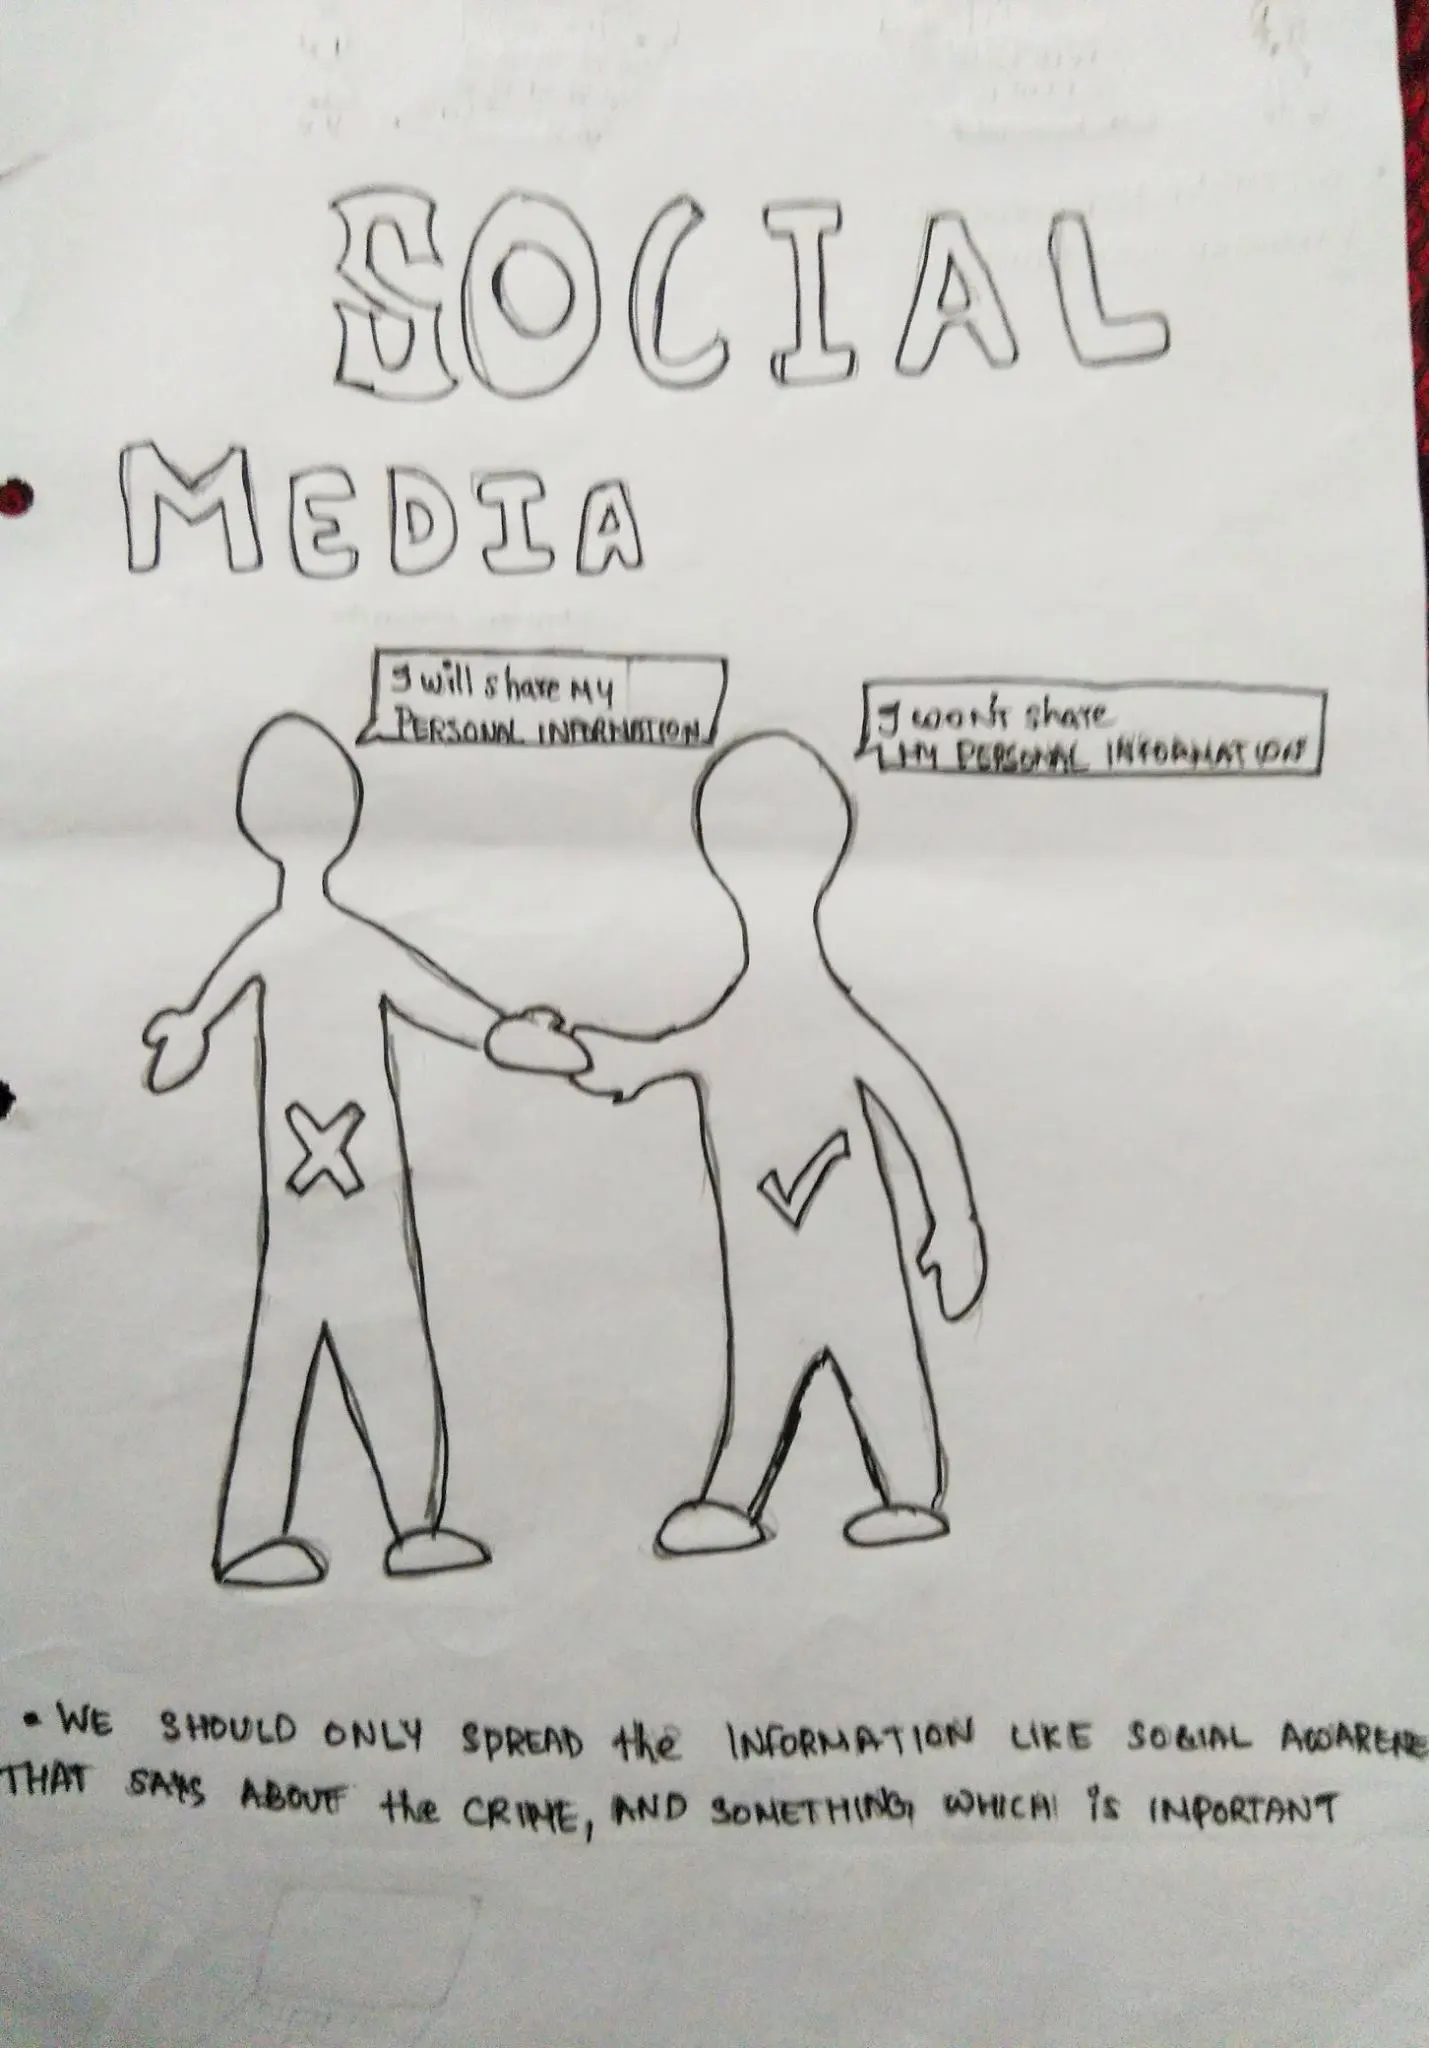 SOCIAL
MEDIA
I will share MY
PERSONAL INFORMATION
I wont share
MY PERSONAL INFORMATION
• WE SHOULD ONLY SPREAD the INFORMATION LIKE SOCIAL AWARENE
THAT SAYS ABOUT the CRIME, AND SOMETHING, WHICH is IMPORTANT